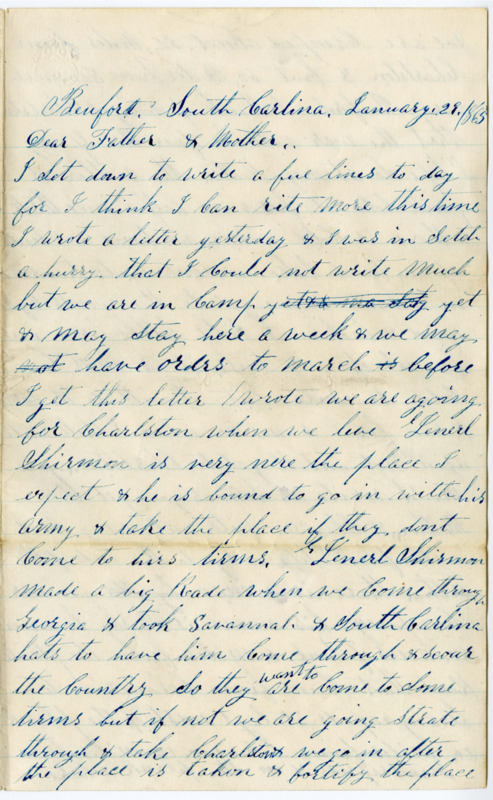 Beufort. South Carlina. January. 29. /1865
Dear Father & Mother..
I Set down to write a fue lines to day
for I think I Can rite more this time
I wrote a letter yesterday & I was in Setch
a hurry that I Could not write much
but we are in Camp yet & ma Stay yet
& may Stay here a week & we may
not have ordrs to march is before
I get this letter wrote we are agoing
for Charlston when we leve Generl
Shirmon is very nere the place I
expect & he is bound to go in with his
army & take the place if they dont
Come to hirs tirms. Generl Shirmon
made a big Rade when we Come through
Georgia & took Savannah & South Carlina
hats to have him Come through & scour
the Country So they want to are Come to Some
tirms but if not we are going Strate
through & take Charlston & we go in after
the place is taken & fortify the place